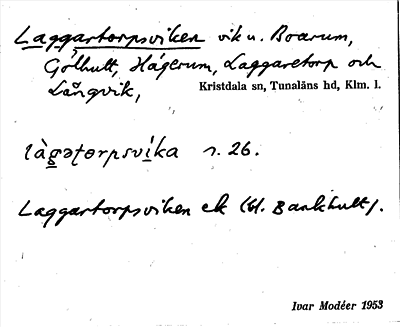 Laggartorpsviken vik u. Boarum,
Gölhult, Hägerum, Laggaretorp och
Långvik,
Kristdala sn, Tunaläns hd, Klm. l.
làgət̨orpsvíka s. 26.
Laggartorpsviken ek (bl. Bankhult).
Ivar Modéer 1953